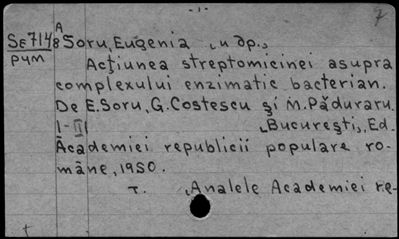 - 1 -
7
A
SE7148 Soru, Eugenia și dp.,
рум
Acţiunea streptomicinei asupra
complexului enzimatic bacterian.
De E. Soru, G. Costescu şi M. Păduraru.
I-II București, Ed.
Academiei republicii populare ro-
mâne, 1950.
T. Analele Academiei re-